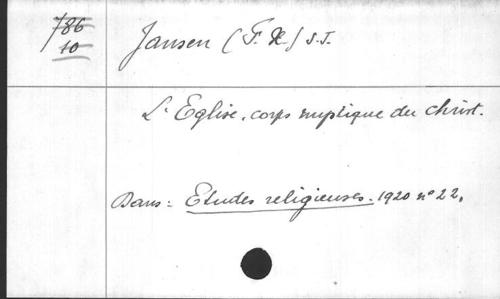 786
10
Jansen (F. X.) S.J.
L'Eglise, corps mystique du Christ.
Dans: Etudes religieuses. 1920 n° 22.